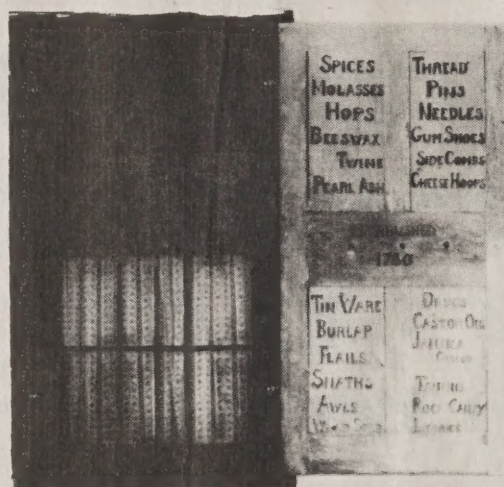 SPICES
MOLASSES
HOPS
BEESWAX
TWINE
PEARL ASH
THREAD
PINS
NEEDLES
GUM SHOES
SIDE COMBS
CHEESE HOOPS
ESTABLISHED
1780
TIN WARE
BURLAP
FLAILS
SNATHS
AWLS
DRUGS
CASTOR OIL
JAMAICA
GINGER
ROCK CANDY